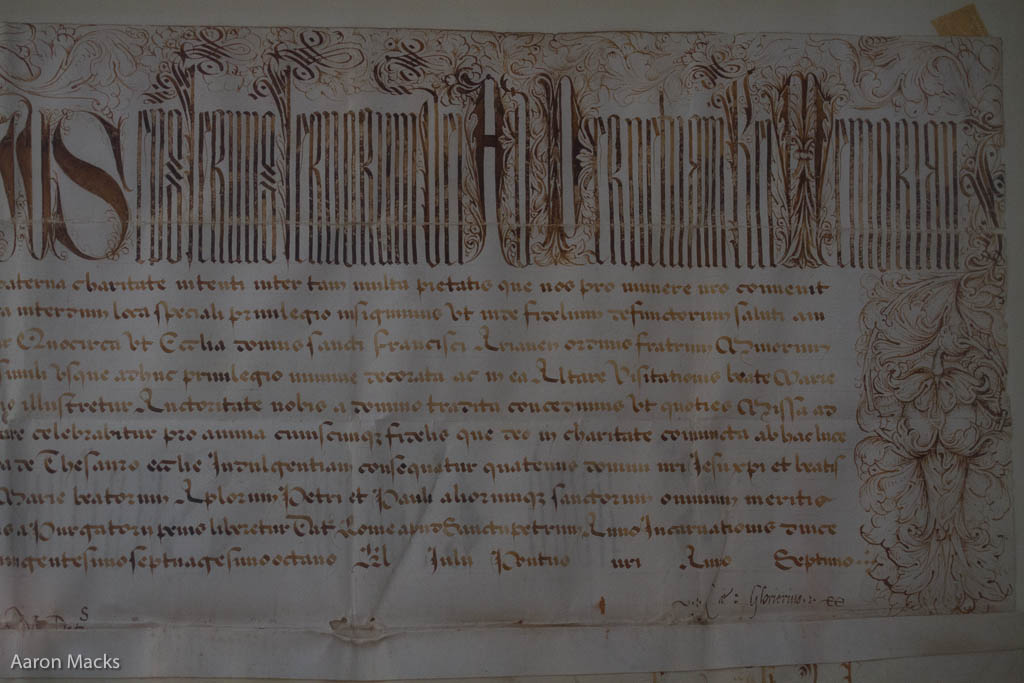 us Eps seruus seruorum Dei Ad Perpetuam Rei Memoriam
paterna charitate intenti inter tam multa pietatis que nos pro munere nro conuenit
interdum loca speciali priuilegio insignimus Vt inde fidelium defunctorum saluti am
Quocirca Vt Ecclia domus sancti Francisci Arianen ordinis fratrum Minorum
simili Vsque adhuc priuilegio minime decorata ac in ea Altare Visitationis beate Marie
illustretur Auctoritate nobis a domino tradita concedimus Vt quoties Missa ad
celebrabitur pro anima cuiuscumq; fidelis que deo in charitate coniuncta ab hac luce
de Thesauro ecclie Indulgentiam consequatur quatenus domini nri Jesu xpi et beatis
Marie beatorum Aplorum Petri et Pauli aliorumq; sanctorum omnium meritis
a Purgatorij penis liberetur Dat Rome apud Sanctu petrum Anno Incarnationis dnice
ngentesimo septuagesimo octauo Kl Iulij Pontus nri Anno Septimo
Cæ: Glorierius
Aaron Macks